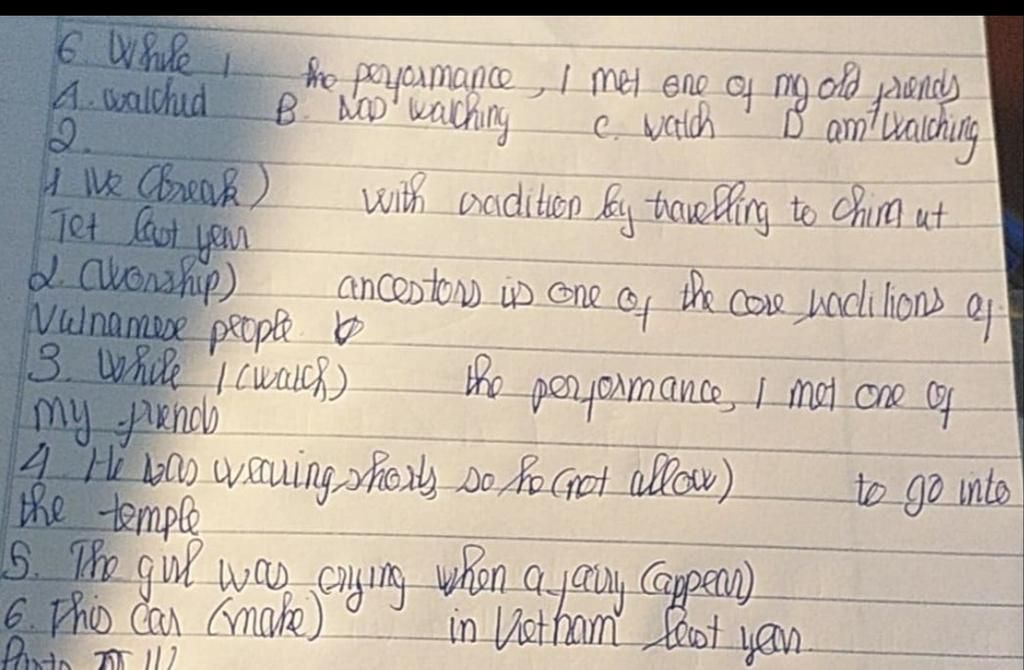 6. While I the performance, I met one of my old friends
A. watched B. was watching C. watch D am watching
2.
1 We (break) with tradition by travelling to China at
Tet last year
2. (Worship) ancestors is one of the core traditions of
Vietnamese people.
3. While I (watch) the performance, I met one of
my friends
4 He was wearing shorts so he (not allow) to go into
the temple
5. The girl was crying when a fairy (appear)
6. This car (make) in Vietnam last year.